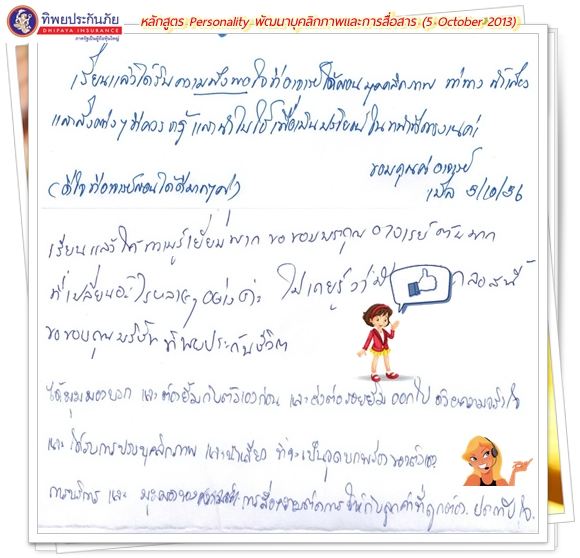 ทิพยประกันภัย
DHIPAYA INSURANCE
หลักสูตร Personality พัฒนาบุคลิกภาพและการสื่อสาร (5 October 2013)
เรียนแล้วได้รับความพึงพอใจที่อาจารย์ได้สอนบุคลิกภาพ ท่าทาง น้ำเสียง
และสิ่งต่างๆ ที่ควรรู้ และนำไปใช้เพื่อเป็นประโยชน์ใน
ขอบคุณค่ะ อาจารย์
(ดีใจที่อาจารย์สอนได้ดีมากๆค่ะ)
5/10/56
เรียนแล้วได้ความรู้เยี่ยมมาก ขอขอบพระคุณอาจารย์
ที่เปลี่ยนอะไรหลายๆ อย่าง ไม่เคยรู้ว่า
ขอขอบคุณบริษัท ทิพยประกันชีวิต
ได้มุมมองบวก และ ต้องยิ้มกับตัวเองก่อน และส่งต่อรอยยิ้มออกไป ด้วยความจริงใจ
และ ได้รับการปรับบุคลิกภาพ และน้ำเสียง ที่จะเป็นจุดบกพร่องของตัวเอง
การบริการ และ การสื่อ ให้กับลูกค้าที่ถูกต้อง ประทับใจ.